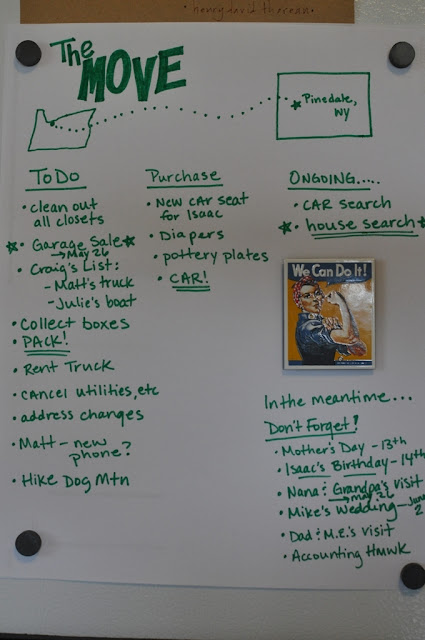 · henry david thoreau ·
The MOVE
Pinedale, WY
To Do
• clean out
all closets
★ • Garage Sale ★
→ May 26
• Craig's List:
- Matt's truck
- Julie's boat
• Collect boxes
• PACK!
• Rent Truck
• cancel utilities, etc
• address changes
• Matt – new
phone?
• Hike Dog Mtn
Purchase
• NEW CAR seat
for Isaac
• Diapers
• pottery plates
• CAR!
ONGOING.....
• CAR search
★ • house search ★
We Can Do It!
In the meantime...
Don't Forget!
• Mother's Day - 13th
• Isaac's Birthday - 14th
• Nana & Grandpa's visit
→ May 26
• Mike's Wedding — June 2
• Dad & M.E.'s visit
• Accounting HMWK